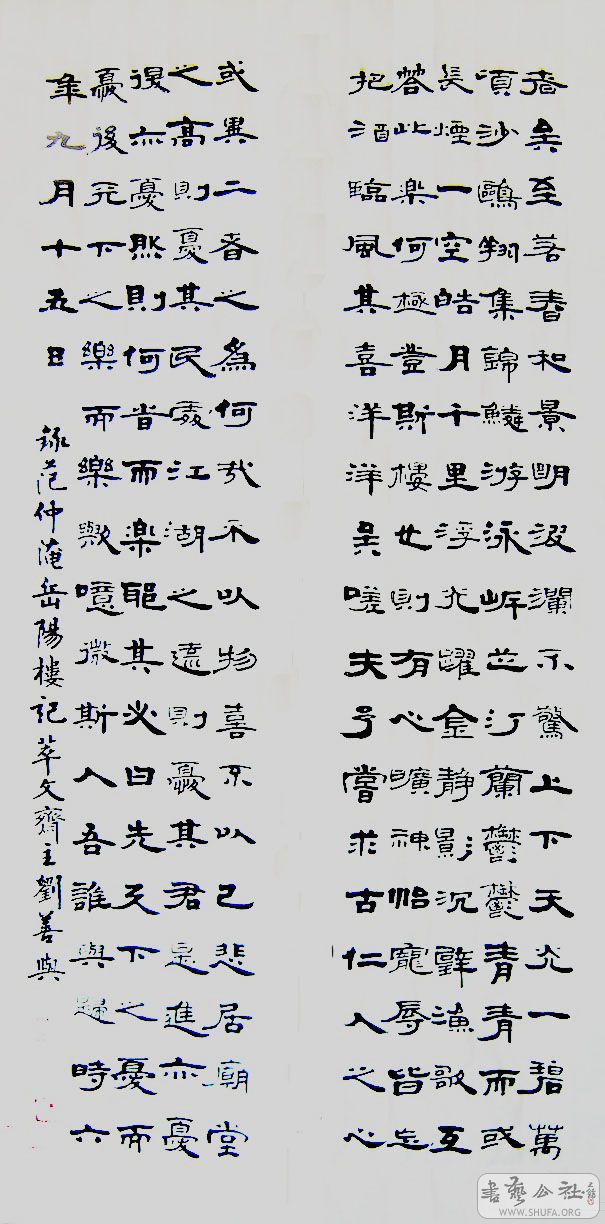 者矣至若春和景明波瀾不驚上下天光一碧萬
頃沙鷗翔集錦鱗游泳岸芷汀蘭鬱鬱青青而或
長煙一空皓月千里浮光躍金靜影沉璧漁歌互
答此楽何極登斯樓也則有心曠神怡寵辱皆忘
把酒臨風其喜洋洋矣嗟夫予嘗求古仁人之心
或異二者之爲何哉不以物喜不以己悲居廟堂
之高則憂其民處江湖之遠則憂其君是進亦憂
退亦憂然則何時而楽耶其必曰先天下之憂而
憂後天下之樂而樂歟噫微斯人吾誰與歸時六
年九月十五日
錄范仲淹岳陽樓記萃文齋主劉善與
書藝公社
WWW.SHUFA.ORG